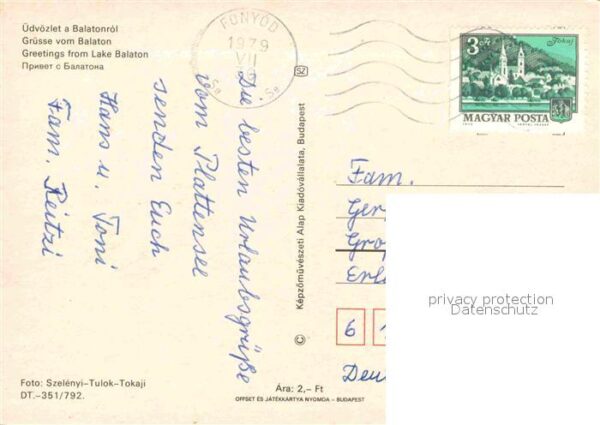 Üdvözlet a Balatonról
Grüsse vom Balaton
Greetings from Lake Balaton
Привет с Балатона
FONYÓD
1979
VII
3 Ft
Tokaj
MAGYAR POSTA
SZ
Die besten Urlaubsgrüße
vom Plattensee
senden Euch
Hans u. Toni
Fam. Reitzi
© Képzőművészeti Alap Kiadóvállalata, Budapest
Fam.
Ger
Gro
Erl
6
Deu
privacy protection
Datenschutz
Foto: Szelényi-Tulok-Tokaji
DT.-351/792.
Ára: 2,- Ft
OFFSET ÉS JÁTÉKKÁRTYA NYOMDA - BUDAPEST